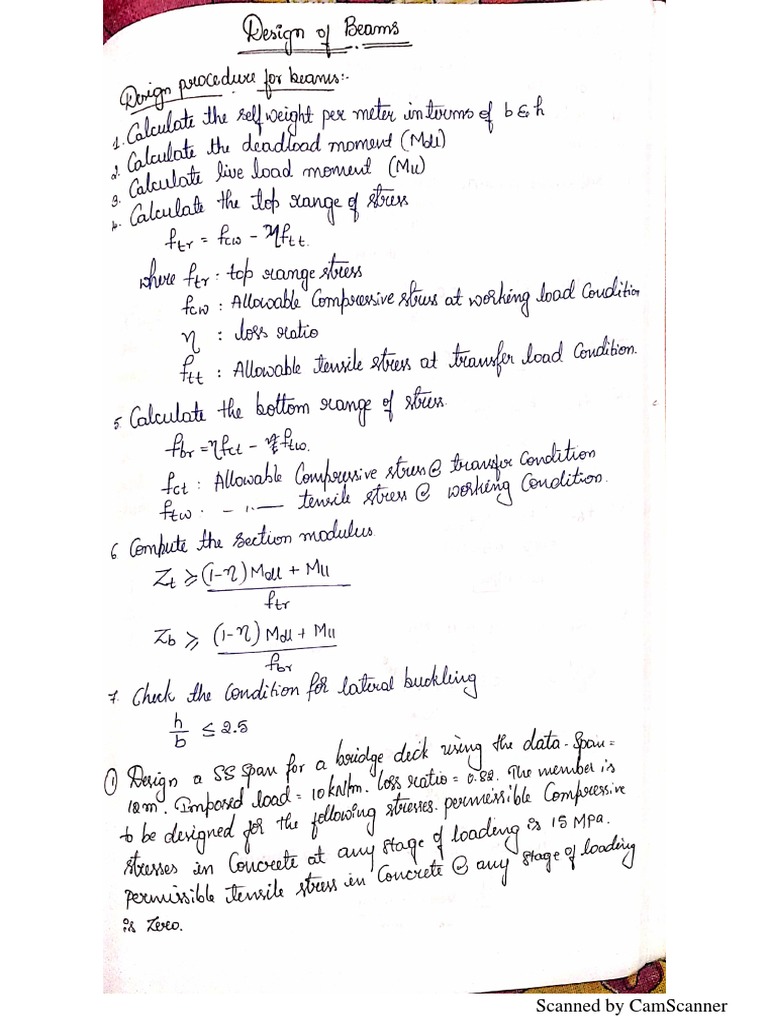 Design of Beams
Design procedure for beams:-
1. Calculate the self weight per meter in terms of b & h
2. Calculate the deadload moment (Mdll)
3. Calculate live load moment (Mll)
4. Calculate the top range of stress
ftr = fcw - ηftt.
where ftr : top range stress
fcw : Allowable Compressive stress at working load Condition
η : loss ratio
ftt : Allowable tensile stress at transfer load Condition.
5. Calculate the bottom range of stress.
fbr = ηfct - ftw.
fct : Allowable Compressive stress @ transfer Condition
ftw . - ,, — tensile stress @ working Condition.
6 Compute the section modulus
Zt ≥ (1-η) Mdll + Mll
ftr
Zb ≥ (1-η) Mdll + Mll
fbr
7. Check the Condition for lateral buckling
h/b ≤ 2.5
① Design a SS span for a bridge deck using the data - Span =
12m. Imposed load = 10 kN/m. loss ratio = 0.82. The member is
to be designed for the following stresses. permissible Compressive
stresses in Concrete at any stage of loading is 15 MPa.
permissible tensile stress in Concrete @ any stage of loading
is zero.
Scanned by CamScanner